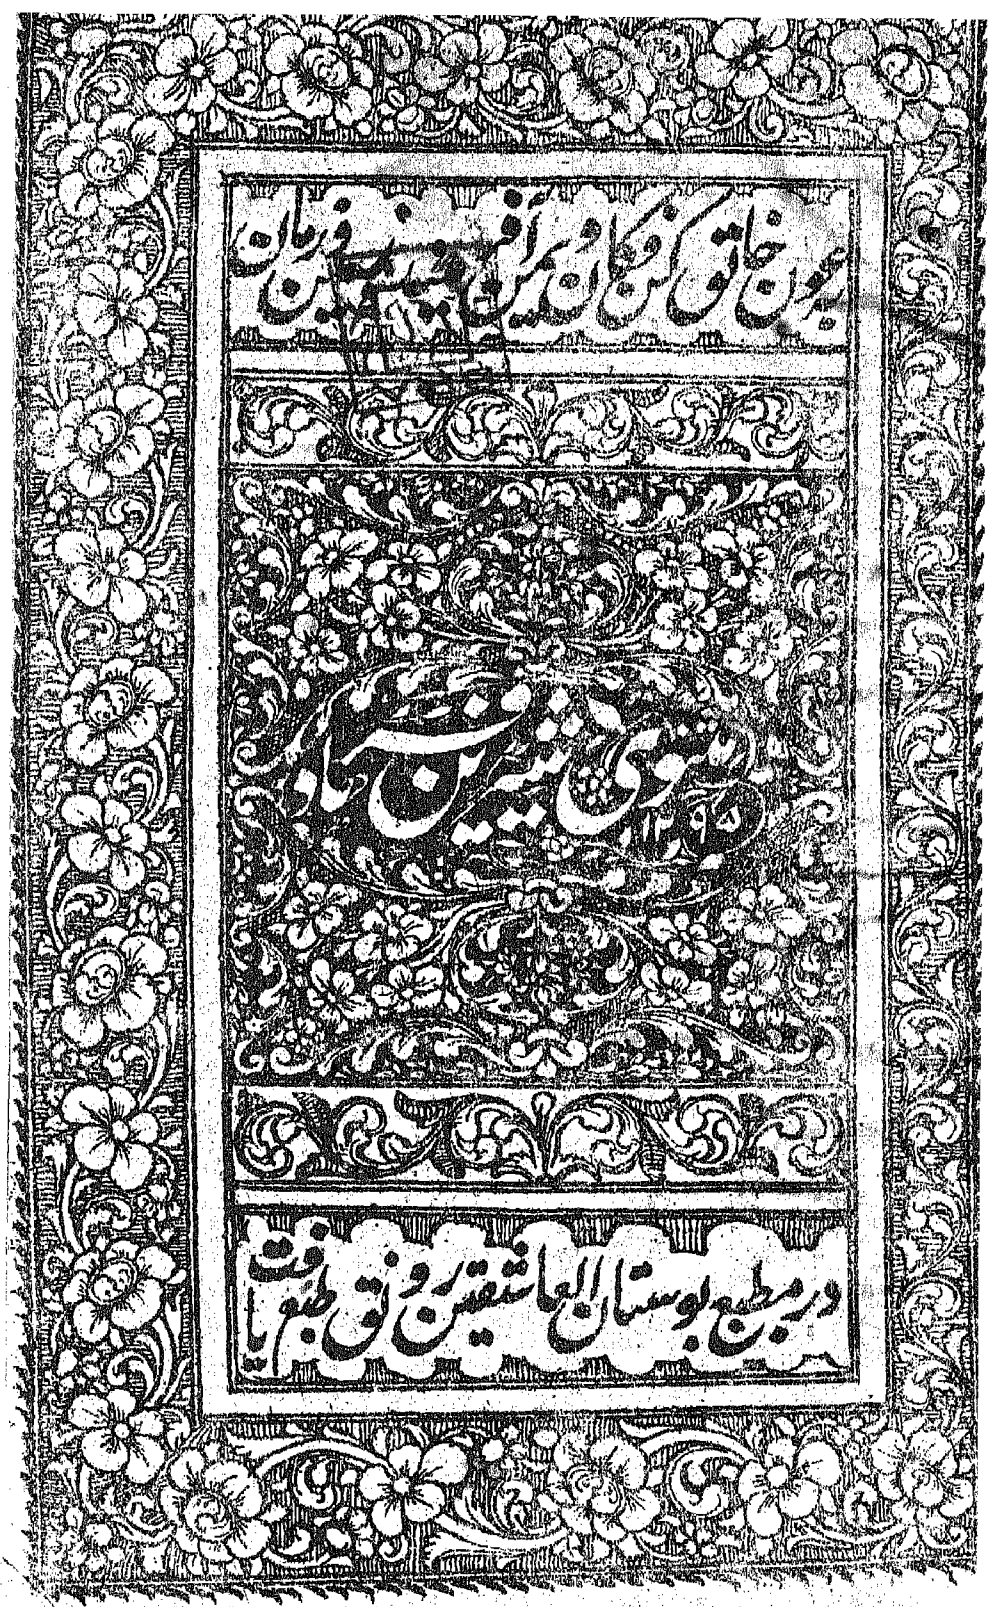 بعون خالق کن فکان و بیمن آفرینندۀ زمین و زمان
مثنوی شیرین خسرو
۱۲۹۵
در مطبع بوستان العاشقین رونق طبع یافت